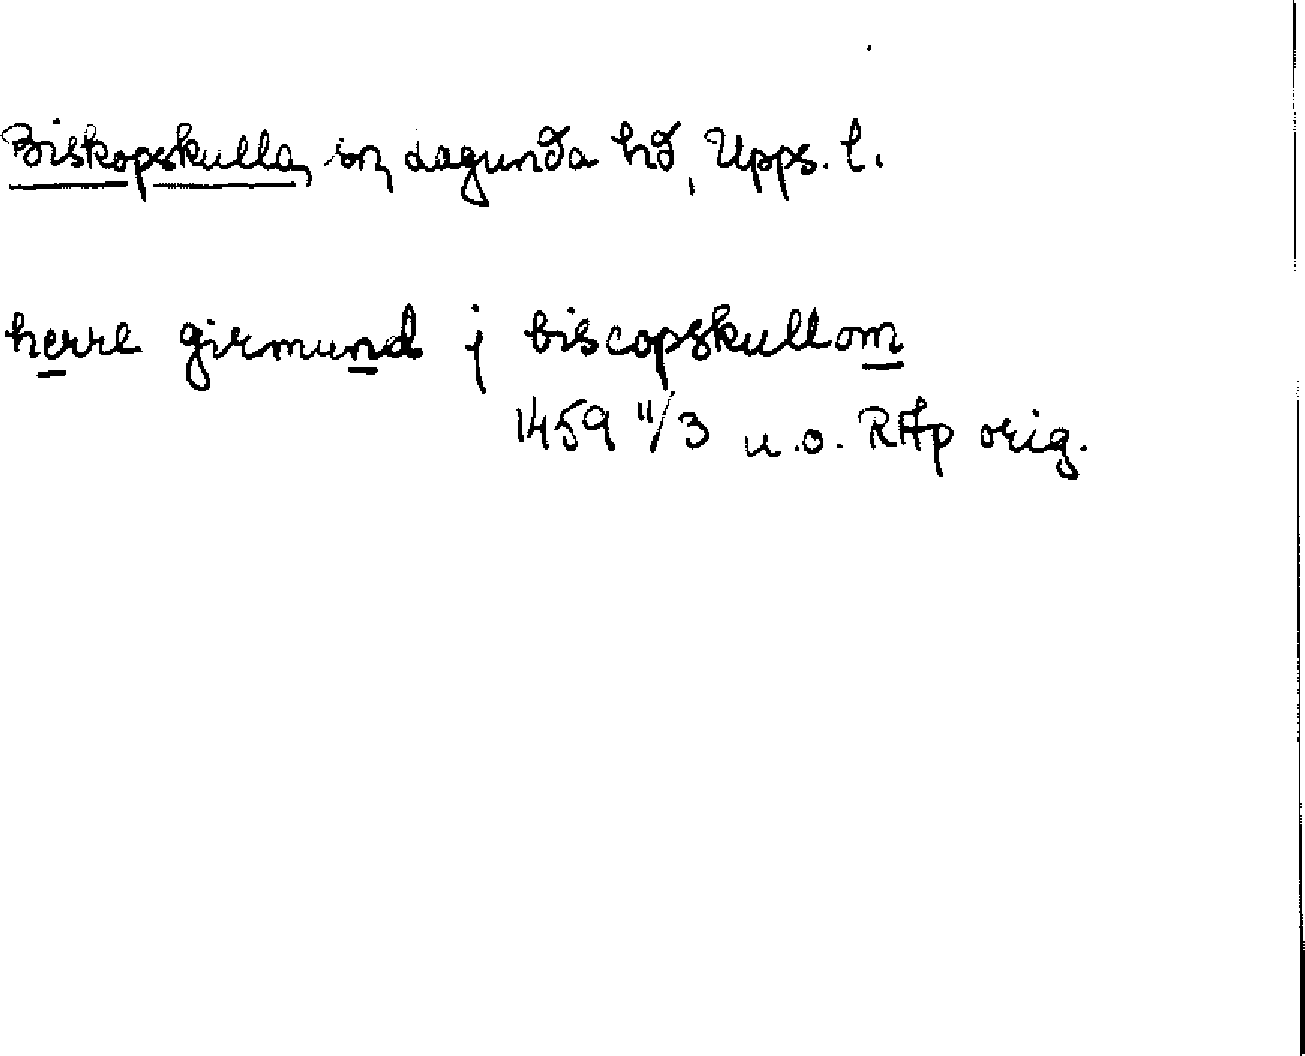 Biskopskulla sn, Lagunda hd, Upps. l.
herre girmund j biscopskullom
1459 11/3 u.o. RAp orig.